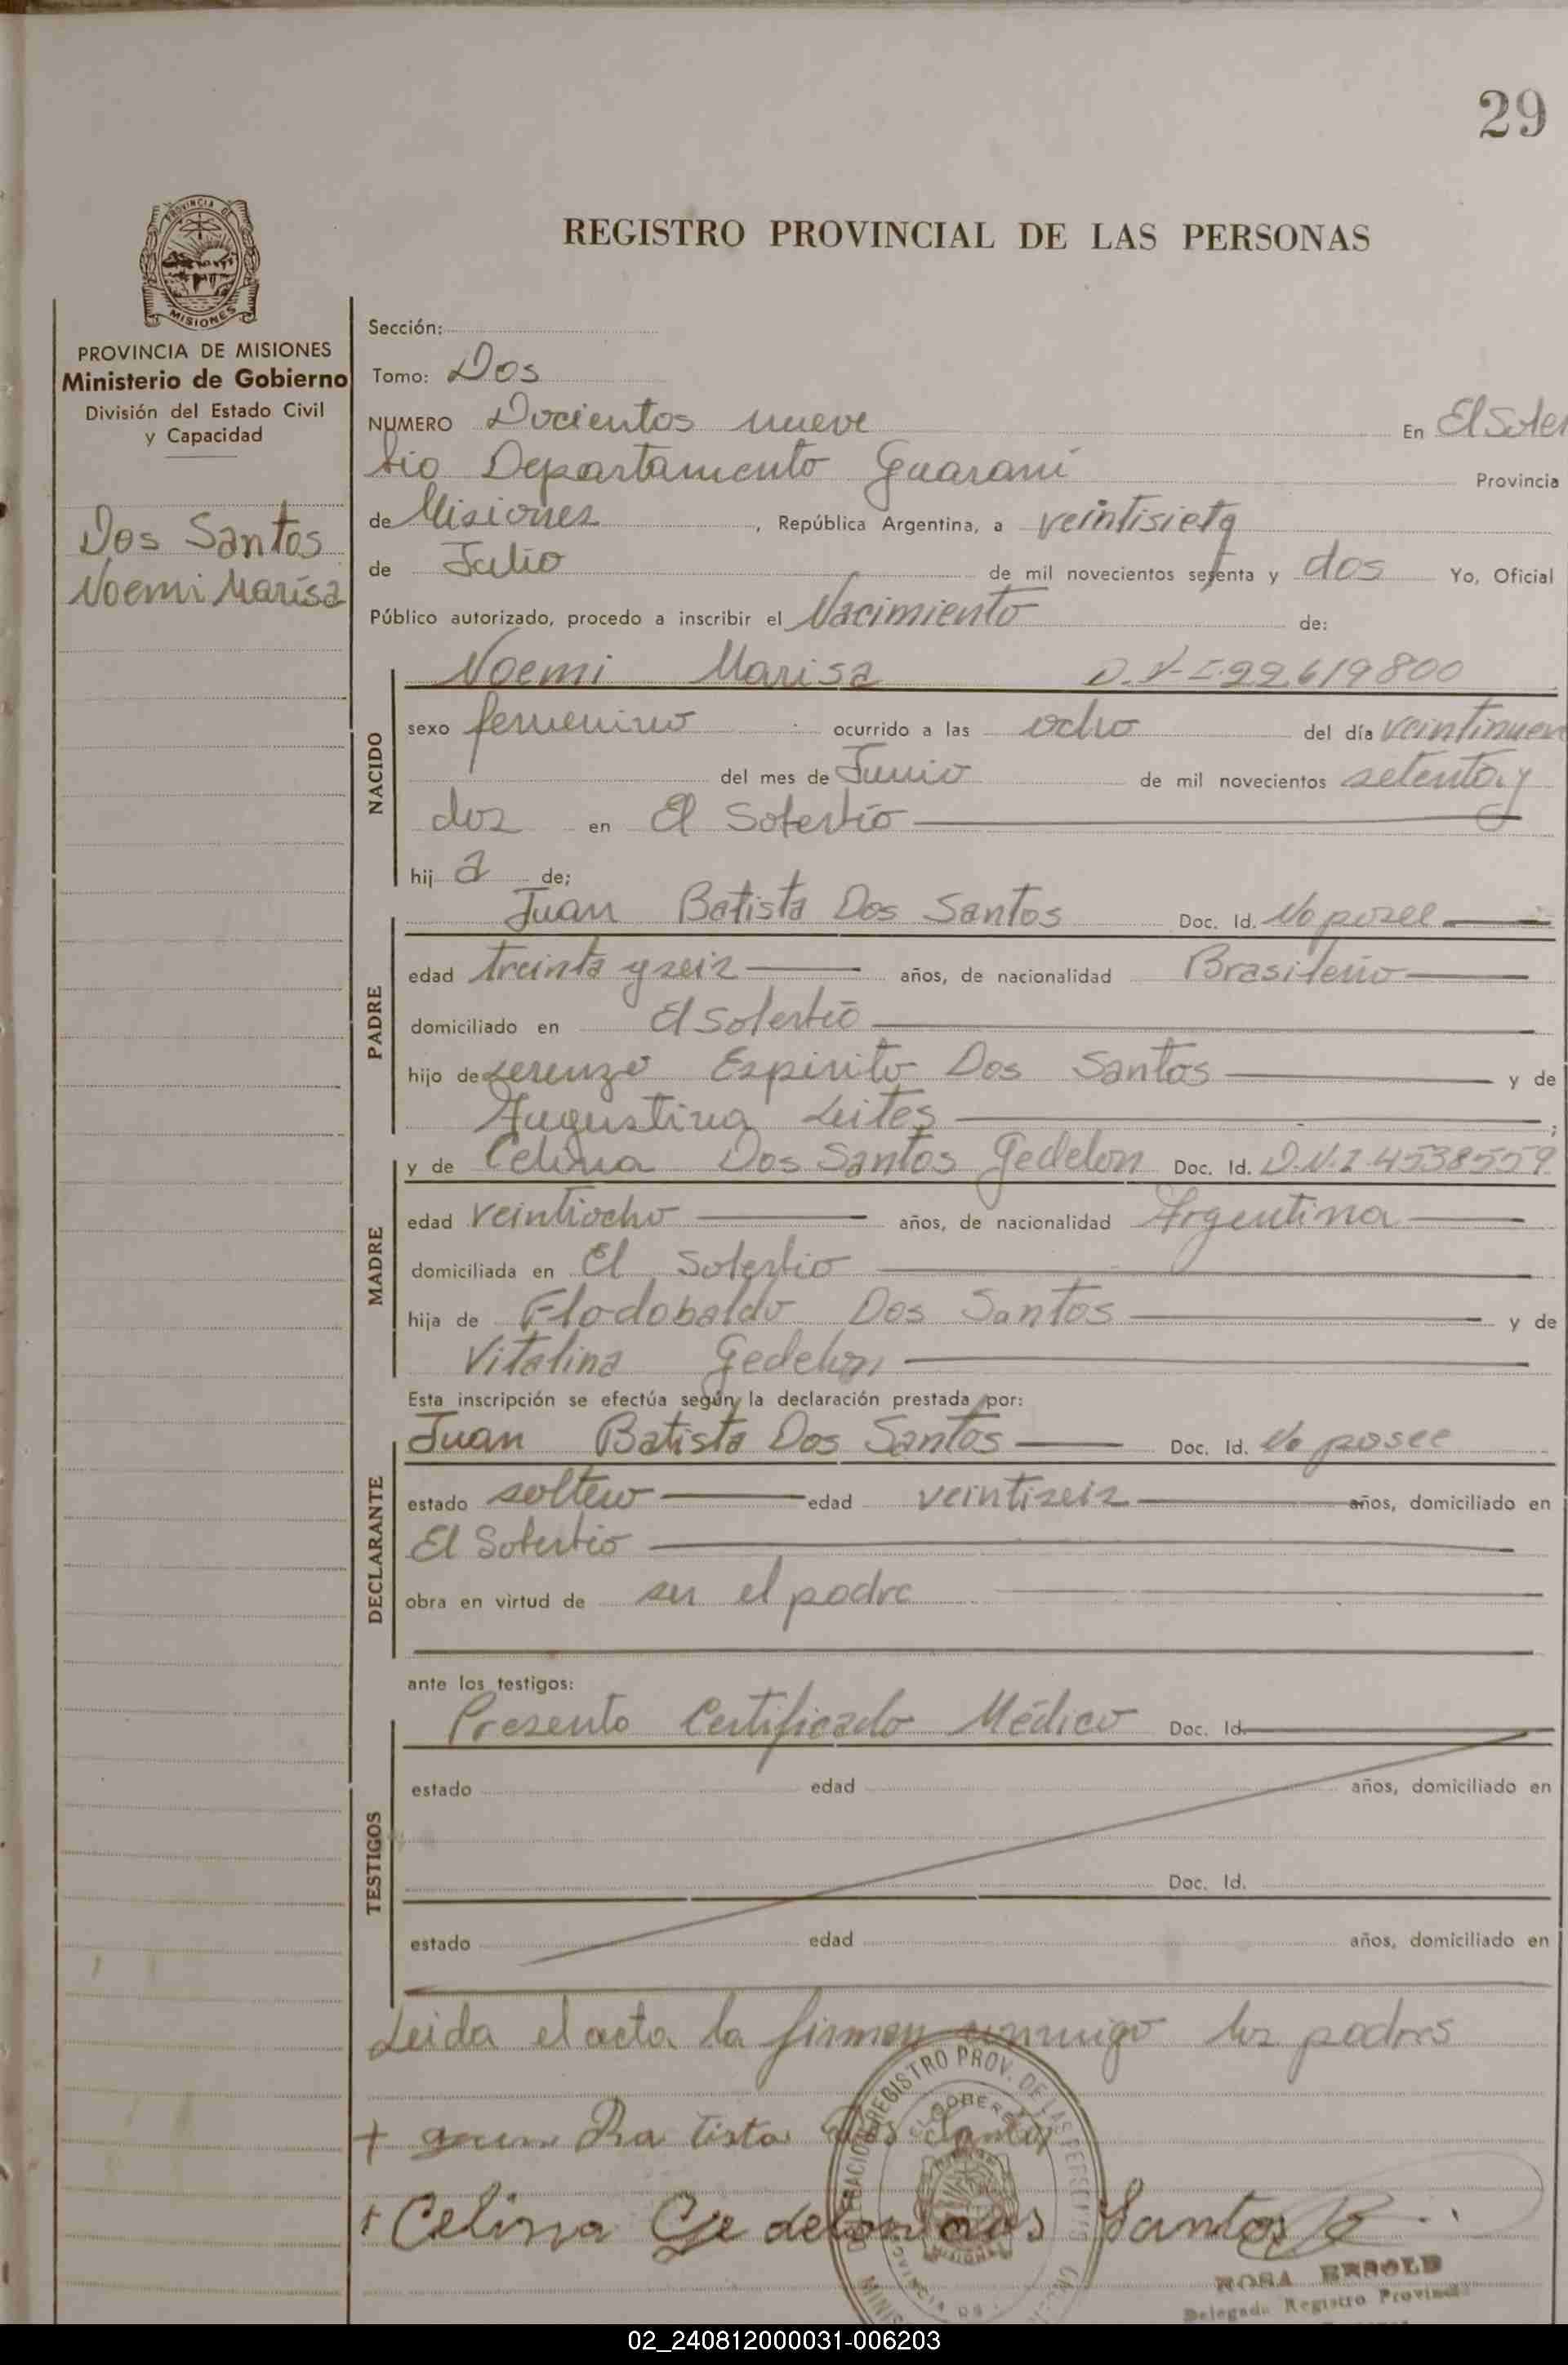 29
PROVINCIA DE
MISIONES
REGISTRO PROVINCIAL DE LAS PERSONAS
PROVINCIA DE MISIONES
Ministerio de Gobierno
División del Estado Civil
y Capacidad
Dos Santos
Noemi Marisa
Sección:
Tomo: Dos
NUMERO Docientos nueve En El Sober
bio Departamento Guaraní Provincia
de Misiones, República Argentina, a veintisiete
de Julio de mil novecientos setenta y dos Yo, Oficial
Público autorizado, procedo a inscribir el Nacimiento de:
NACIDO
Noemi Marisa D.N-I.22.619800
sexo femenino ocurrido a las ocho del día veintinueve
del mes de Junio de mil novecientos setenta y
dos en El Soberbio
hij a de;
PADRE
Juan Batista Dos Santos Doc. Id. No posee
edad treinta y seis años, de nacionalidad Brasileño
domiciliado en El Soberbio
hijo de Lerenzo Espirito Dos Santos y de
Augustina Leites ;
MADRE
y de Celina Dos Santos Gedelon Doc. Id. D.N.I. 4538559
edad veintiocho años, de nacionalidad Argentina
domiciliada en El Soberbio
hija de Flodobaldo Dos Santos y de
Vitalina Gedelon
Esta inscripción se efectúa según la declaración prestada por:
DECLARANTE
Juan Batista Dos Santos Doc. Id. No posee
estado soltero edad veintiseis años, domiciliado en
El Soberbio
obra en virtud de ser el padre
ante los testigos:
TESTIGOS
Presento Certificado Médico Doc. Id.
estado edad años, domiciliado en
Doc. Id.
estado edad años, domiciliado en
Leida el acta la firman conmigo los padres
+ Ba tista Dos Santos
+ Celina Ge delon dos Santos
REGISTRO PROV. DE LAS PERSONAS
MISIONES
ROSA
Delegada Registro Provincial
02_240812000031-006203